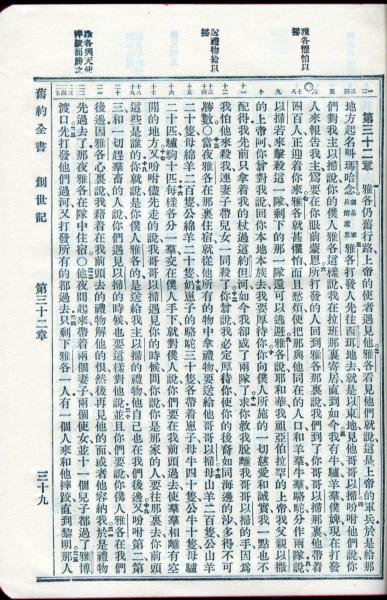 雅各懼怕以掃
送禮物給以掃
雅各與天使摔跤而勝之
第三十二章 雅各仍舊行路上帝的使者遇見他雅各看見他們就說這是上帝的軍兵於是給那
地方起名叫瑪哈念就是二軍兵的意思雅各打發人先往西珥地去就是以東地見他哥哥以掃吩咐他們說你
們對我主以掃說你的僕人雅各這樣說我在拉班那裏寄居直到如今我有牛驢羊羣僕婢現在打發
人來報告我主為要在你眼前蒙恩所打發的人回到雅各那裏說我們到了你哥哥以掃那裏他帶着
四百人正迎着你來雅各就甚懼怕而且愁煩便把那與他同在的人口和羊羣牛羣駱駝分作兩隊說
以掃若來擊殺這一隊剩下的那一隊還可以逃避雅各說耶和華我祖亞伯拉罕的上帝我父親以撒
的上帝阿你曾對我說回你本地本族去我要厚待你你向僕人所施的一切慈愛和誠實我一點也不
配得我先前只拿着我的杖過這約但河如今我卻成了兩隊了求你救我脫離我哥哥以掃的手因為
我怕他來殺我連妻子帶兒女一同殺了你曾說我必定厚待你使你的後裔如同海邊的沙多得不可
勝數○當夜雅各在那裏住宿就從他所有的物中拿禮物要送給他哥哥以掃母山羊二百隻公山羊
二十隻母綿羊二百隻公綿羊二十隻奶崽子的駱駝三十隻各帶着崽子母牛四十隻公牛十隻母驢
二十匹驢駒十匹每樣各分一羣交在僕人手下就對僕人說你們要在我前頭過去使羣羣相離有空
閒的地方又吩咐儘先走的說我哥哥以掃遇見你的時候問你說你是那家的人要往那裏去你前頭
這些是誰的你就說是你僕人雅各的是送給我主以掃的禮物他自己也在我們後邊又吩咐第二第
三和一切趕羣畜的人說你們遇見以掃的時候也要這樣對他說並且你們要說你僕人雅各在我們
後邊因雅各心裏說我藉着在我前頭去的禮物解他的恨然後再見他的面或者他容納我於是禮物
先過去了那夜雅各在隊中住宿○他夜間起來帶着兩個妻子兩個使女並十一個兒子都過了雅博
渡口先打發他們過河又打發所有的都過去只剩下雅各一人有一個人來和他摔跤直到黎明那人
舊約全書 創世記 第三十二章 三十九